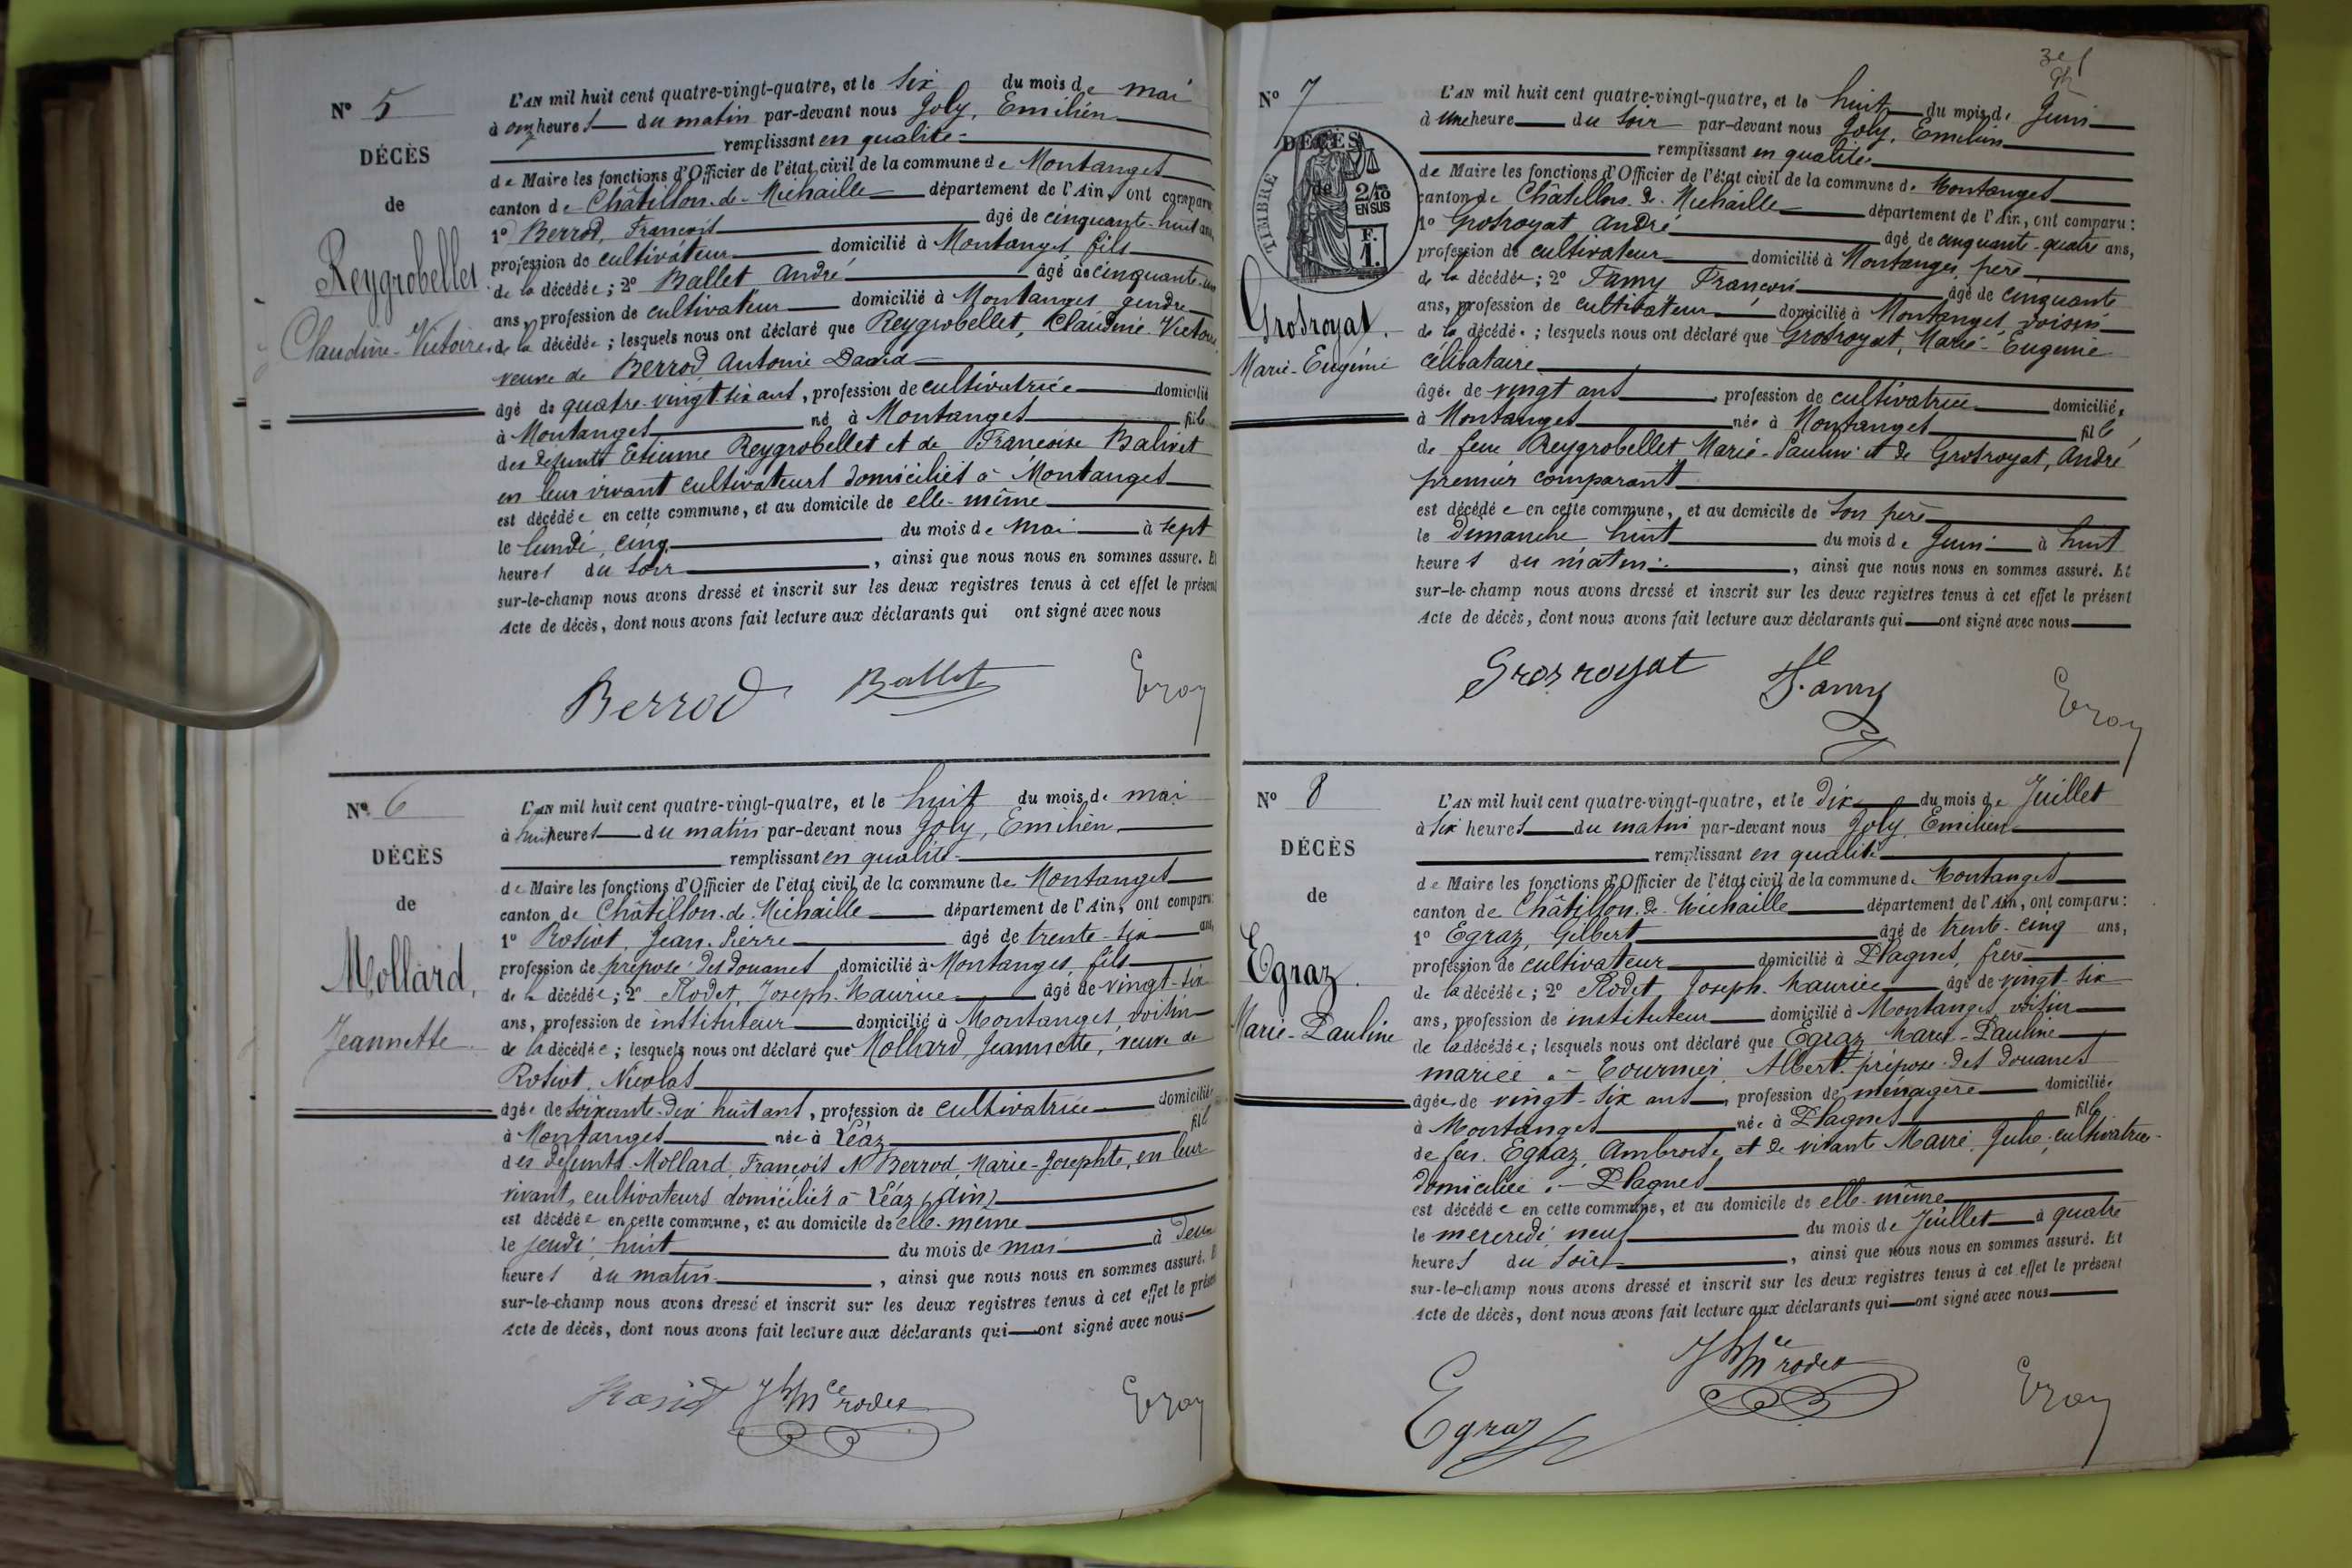 N° 5
DÉCÈS
de
Reygrobellet
Claudine-Victoire
L'AN mil huit cent quatre-vingt-quatre, et le six du mois de mai
à onz heures du matin par-devant nous Joly, Emilien
remplissant en qualité
de Maire les fonctions d'Officier de l'état civil de la commune de Montanges
canton de Châtillon-de-Michaille département de l'Ain, ont comparu
1° Berrod, François âgé de cinquante-huit ans,
profession de cultivateur domicilié à Montanges, fils
de la décédée; 2° Ballet André âgé de cinquante-un
ans, profession de cultivateur domicilié à Montanges gendre
de la décédée; lesquels nous ont déclaré que Reygrobellet, Claudine Victoire,
veuve de Berrod Antoine David
âgé de quatre-vingt-six ans, profession de cultivatrice domicilié
à Montanges né à Montanges fille
des défunts Etienne Reygrobellet et de Françoise Balivet
en leur vivant cultivateurs domiciliés à Montanges
est décédée en cette commune, et au domicile de elle-même
le lundi, cinq du mois de mai à sept
heures du soir, ainsi que nous nous en sommes assuré. Et
sur-le-champ nous avons dressé et inscrit sur les deux registres tenus à cet effet le présent
Acte de décès, dont nous avons fait lecture aux déclarants qui ont signé avec nous
Berrod Ballet
N° 6
DÉCÈS
de
Mollard,
Jeannette
L'AN mil huit cent quatre-vingt-quatre, et le huit du mois de mai
à huit heures du matin par-devant nous Joly, Emilien
remplissant en qualité
de Maire les fonctions d'Officier de l'état civil de la commune de Montanges
canton de Châtillon-de-Michaille département de l'Ain, ont comparu:
1° Rosset, Jean-Pierre âgé de trente-six ans,
profession de préposé des douanes domicilié à Montanges, fils
de la décédée; 2° Rodet, Joseph-Maurice âgé de vingt-six
ans, profession de instituteur domicilié à Montanges, voisin
de la décédée; lesquels nous ont déclaré que Mollard, Jeannette, veuve de
Nicolas
âgée de soixante-dix huit ans, profession de cultivatrice domiciliée
à Montanges née à Léaz fille
des défunts Mollard, François et Berrod, Marie-Josephte, en leur
vivant, cultivateurs domiciliés à Léaz (Ain)
est décédée en cette commune, et au domicile de elle-même
le jeudi, huit du mois de mai à deux
heures du matin, ainsi que nous nous en sommes assuré. Et
sur-le-champ nous avons dressé et inscrit sur les deux registres tenus à cet effet le présent
Acte de décès, dont nous avons fait lecture aux déclarants qui ont signé avec nous
Jh Mce rodet
N° 7
DÉCÈS
de
TIMBRE
2/10
EN SUS
F.
1.
Grosroyat.
Marie-Eugénie
L'AN mil huit cent quatre-vingt-quatre, et le huit du mois de Juin
à une heure du soir par-devant nous Joly, Emilien
remplissant en qualité
de Maire les fonctions d'Officier de l'état civil de la commune de Montanges
canton de Châtillon-de-Michaille département de l'Ain, ont comparu:
1° Grosroyat André âgé de cinquante-quatre ans,
profession de cultivateur domicilié à Montanges, père
de la décédée; 2° Famy François âgé de cinquante
ans, profession de cultivateur domicilié à Montanges, voisin
de la décédée; lesquels nous ont déclaré que Grosroyat, Marie-Eugénie
célibataire
âgée de vingt ans, profession de cultivatrice domiciliée
à Montanges née à Montanges fille
de feue Reygrobellet Marie-Pauline et de Grosroyat, André
premier comparant
est décédée en cette commune, et au domicile de son père
le dimanche, huit du mois de Juin à huit
heures du matin, ainsi que nous nous en sommes assuré. Et
sur-le-champ nous avons dressé et inscrit sur les deux registres tenus à cet effet le présent
Acte de décès, dont nous avons fait lecture aux déclarants qui ont signé avec nous
Grosroyat Famy
N° 8
DÉCÈS
de
Egraz.
Marie-Pauline
L'AN mil huit cent quatre-vingt-quatre, et le dix du mois de Juillet
à six heures du matin par-devant nous Joly, Emilien
remplissant en qualité
de Maire les fonctions d'Officier de l'état civil de la commune de Montanges
canton de Châtillon-de-Michaille département de l'Ain, ont comparu:
1° Egraz, Gilbert âgé de trente-cinq ans,
profession de cultivateur domicilié à Plagnes, frère
de la décédée; 2° Rodet Joseph-Maurice âgé de vingt-six
ans, profession de instituteur domicilié à Montanges, voisin
de la décédée; lesquels nous ont déclaré que Egraz Marie-Pauline
mariée à Tournier, Albert préposé des douanes
âgée de vingt-six ans, profession de ménagère domiciliée
à Montanges née à Plagnes fille
de feu Egraz, Ambroise, et de vivante Julie, cultivatrice
domiciliée à Plagnes
est décédée en cette commune, et au domicile de elle-même
le mercredi, neuf du mois de Juillet à quatre
heures du soir, ainsi que nous nous en sommes assuré. Et
sur-le-champ nous avons dressé et inscrit sur les deux registres tenus à cet effet le présent
Acte de décès, dont nous avons fait lecture aux déclarants qui ont signé avec nous
Jh Mce rodet
Egraz